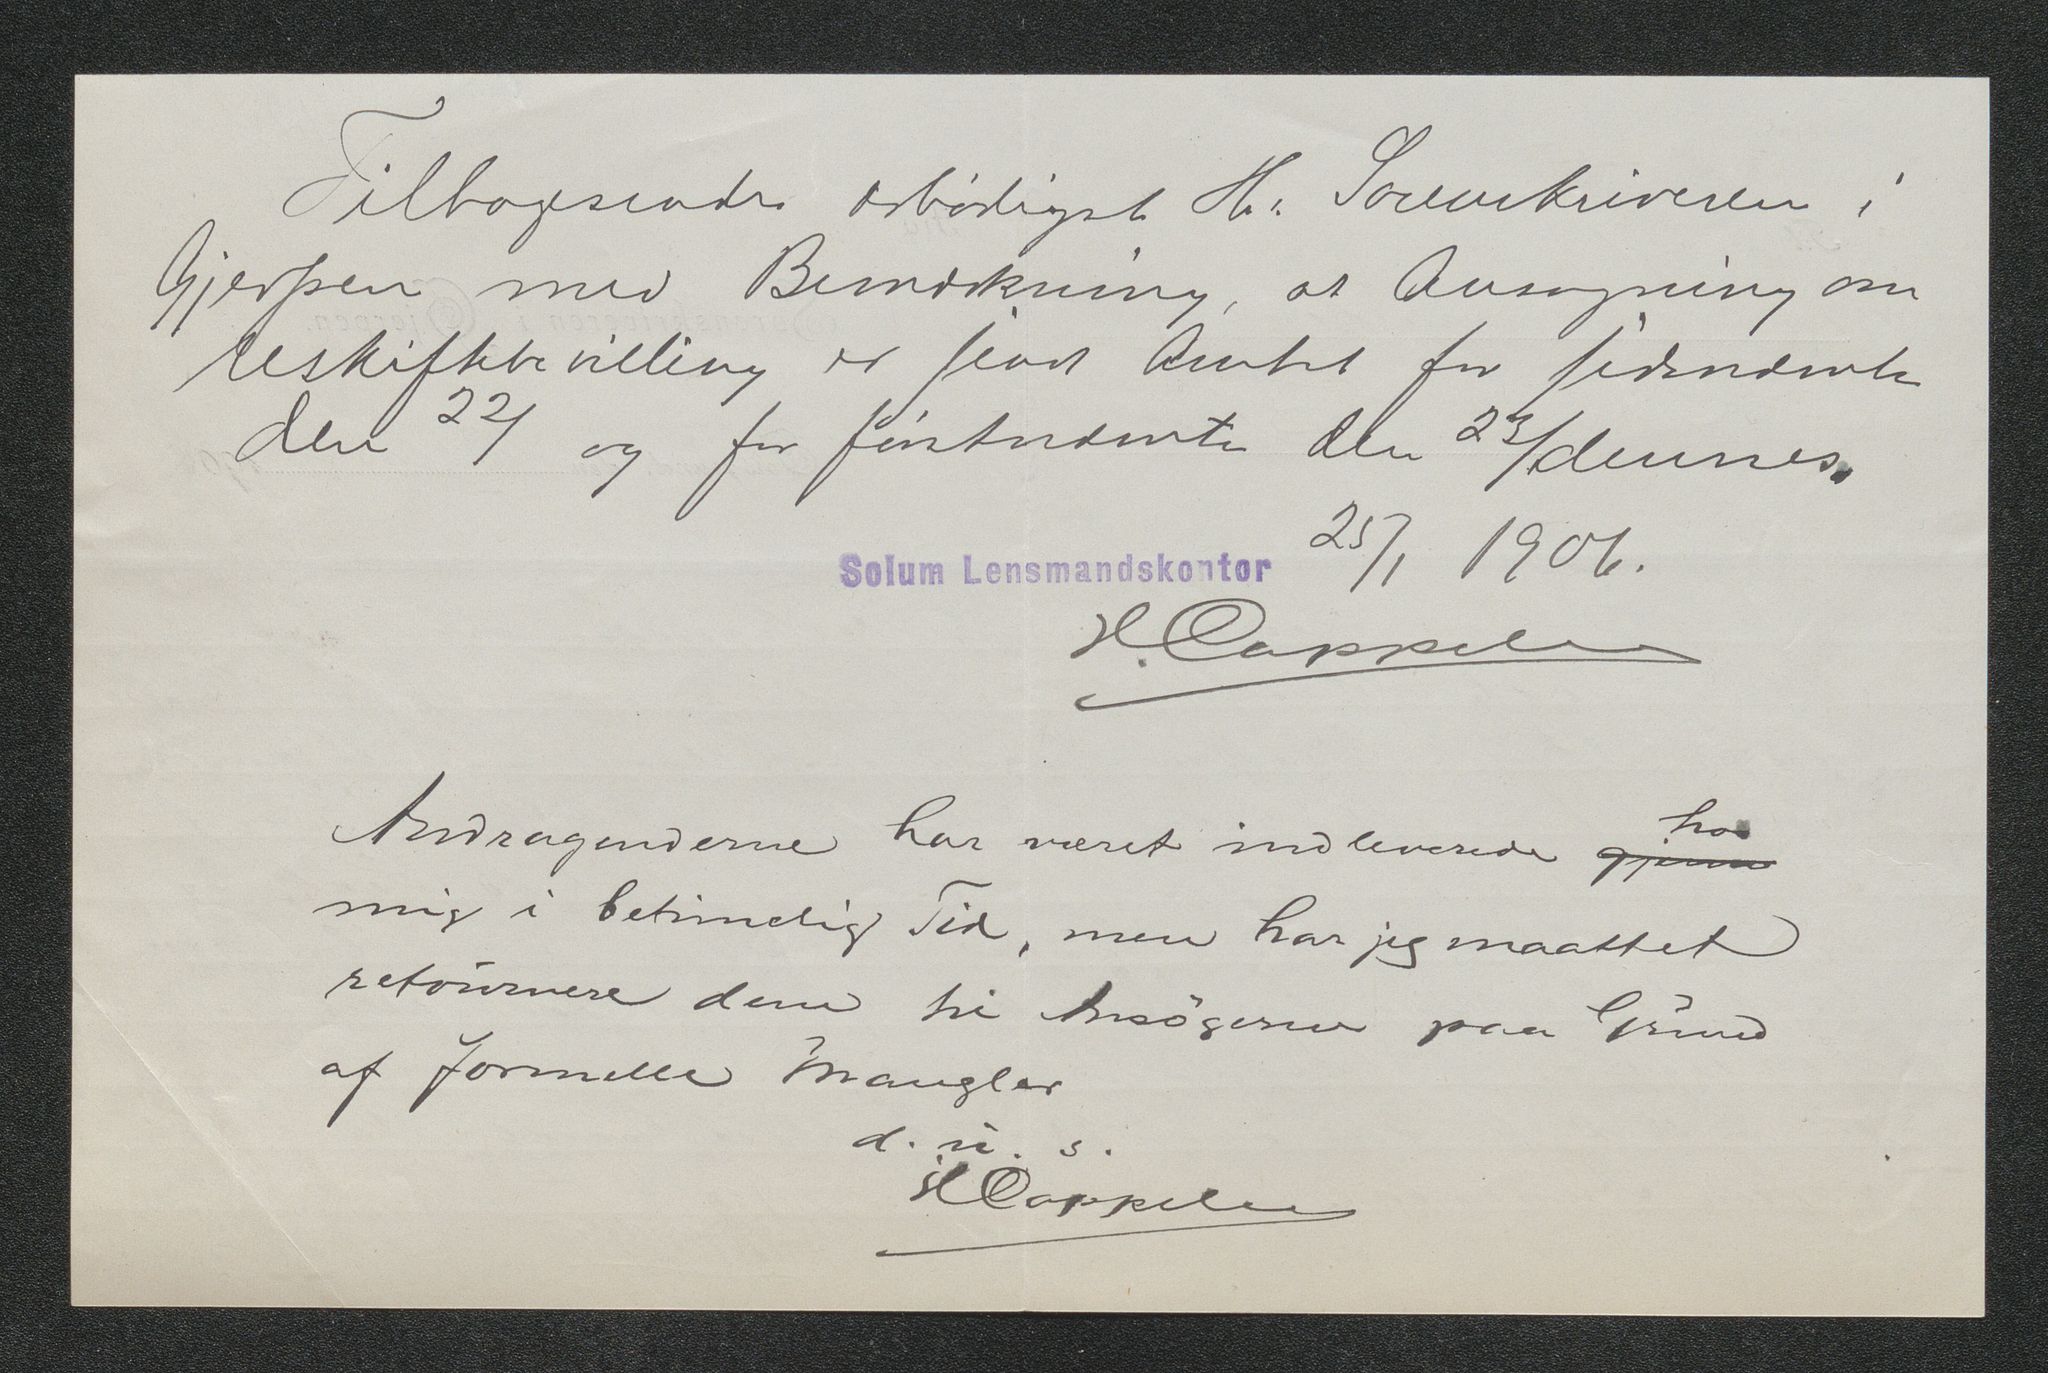 Tilbagesendes ærbødigst Hr. Sorenskriveren i
Gjerpen med Bemærkning, at Ansøgning om
Uskiftebevilling er sendt Amtet for sidsnævnte
den 22/ og for førstnævnte den 23/ dennes.
Solum Lensmandskontor 25/1 1906.
H. Cappelen
Andragenderne har været indleverede hos
mig i betimelig Tid, men har jeg maattet
retournere dem til Ansøgerne paa Grund
af formelle Mangler
d. u. s.
H Cappelen